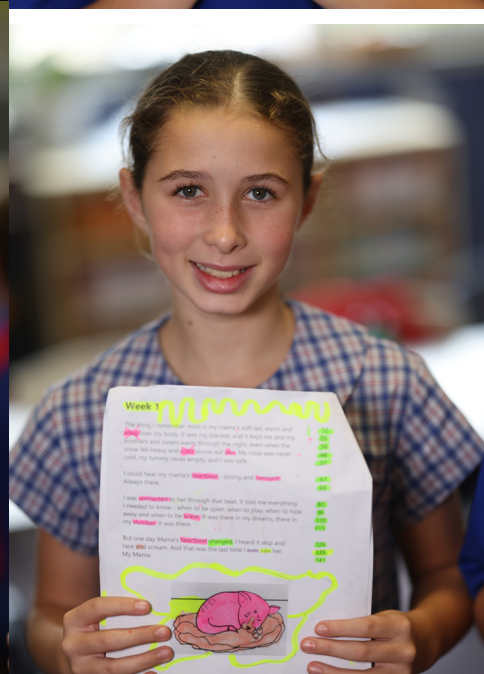 Week 1
The thing I remember most is my mama's soft tail, warm and
over my body. It was my blanket, and it kept me and my
brothers and sisters warm through the night, even when the
snow fell heavy and above our My nose was never
cold, my tummy never empty, and I was safe.
I could hear my mama's heartbeat - strong and
Always there.
I was connected to her through that beat. It told me everything
I needed to know - when to be quiet, when to play, when to hide
away and when to be brave. It was there in my dreams, there in
my slumber. It was there.
But one day Mama's heartbeat changed. I heard it skip and
race and scream. And that was the last time I was her.
My Mama.